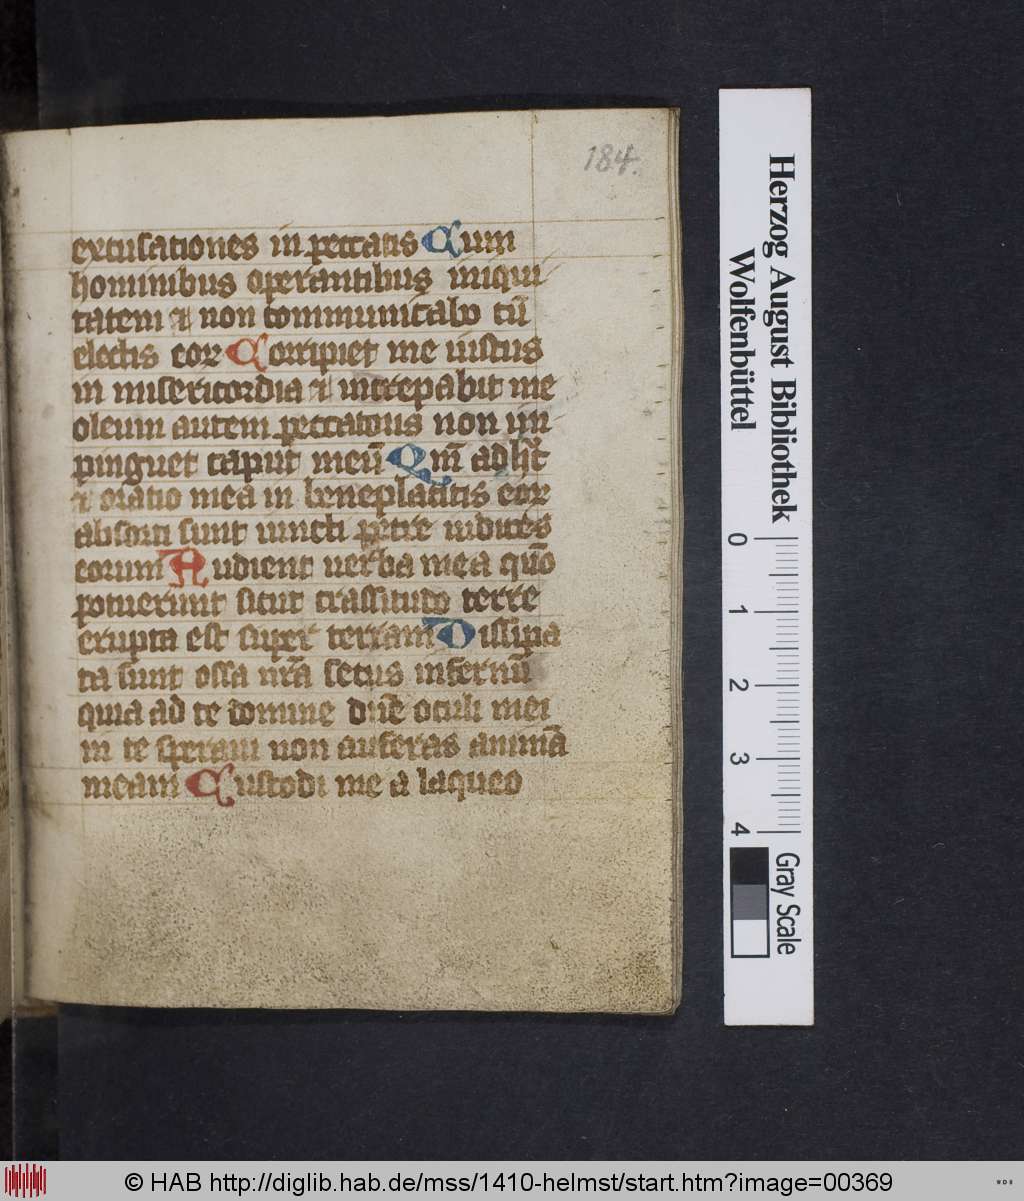 184.
excusationes in peccatis Cum
hominibus operantibus iniqui
tatem et non communicabo cū
electis eor Corripiet me iustus
in misericordia et increpabit me
oleum autem peccatoris non im
pinguet caput meū Qm̄ adhc̄
et oratio mea in beneplacitis eor
absorti sunt iuncti petre iudices
eorum Audient verba mea quō
potuerunt sicut crassitudo terre
erupta est super terram Dissipa
ta sunt ossa nrā secus infernū
quia ad te domine dnē oculi mei
in te speraui non auferas animā
meam Custodi me a laqueo
Herzog August Bibliothek
Wolfenbüttel
0 1 2 3 4
Gray Scale
© HAB http://diglib.hab.de/mss/1410-helmst/start.htm?image=00369